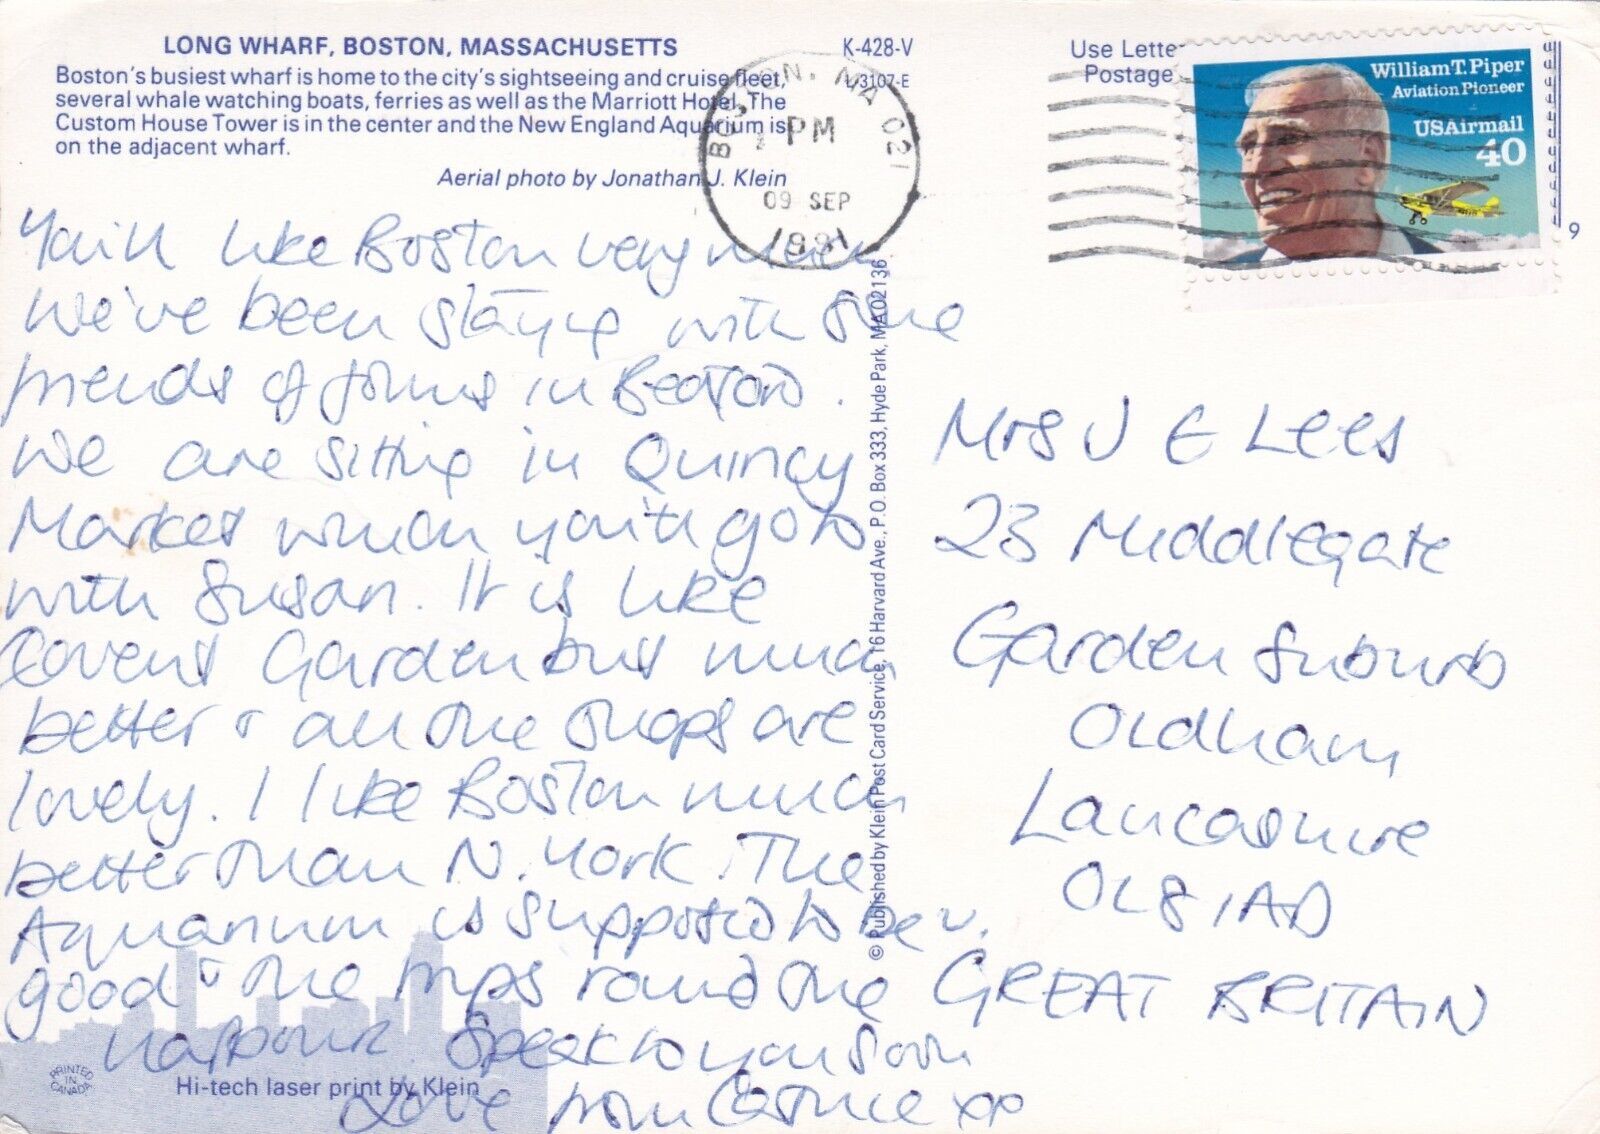 LONG WHARF, BOSTON, MASSACHUSETTS
Boston's busiest wharf is home to the city's sightseeing and cruise fleet,
several whale watching boats, ferries as well as the Marriott Hotel. The
Custom House Tower is in the center and the New England Aquarium is
on the adjacent wharf.
Aerial photo by Jonathan J. Klein
K-428-V
3107-E
Use Lette
Postage
BOSTON, MA 021
PM
09 SEP
1991
William T. Piper
Aviation Pioneer
USAirmail
40
9
You'll like Boston very much
We've been staying with some
friends of Johns in Boston.
We are sitting in Quincy
Market which you'll go to
with Susan. It is like
Covent Garden but much
better & all the shops are
lovely. I like Boston much
better than N. York. The
Aquarium is supposed to be v.
good & the trips round the
harbour. Speak to you soon
Love from xx
© Published by Klein Post Card Service, 16 Harvard Ave., P.O. Box 333, Hyde Park, MA 02136
Mrs J E Lees
23 Middlegate
Garden Suburb
Oldham
Lancashire
OL8 1AD
GREAT BRITAIN
PRINTED
IN
CANADA
Hi-tech laser print by Klein